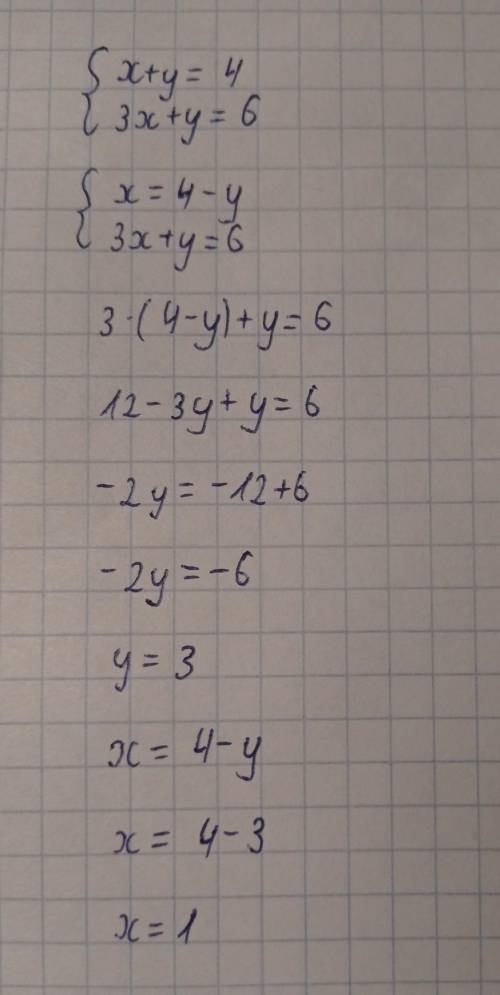 x+y= 4
3x+y= 6
x = 4-y
3x+y=6
3·(4-y)+y= 6
12-3y+y=6
-2y=-12+6
-2y=-6
y= 3
x= 4-y
x= 4-3
x=1